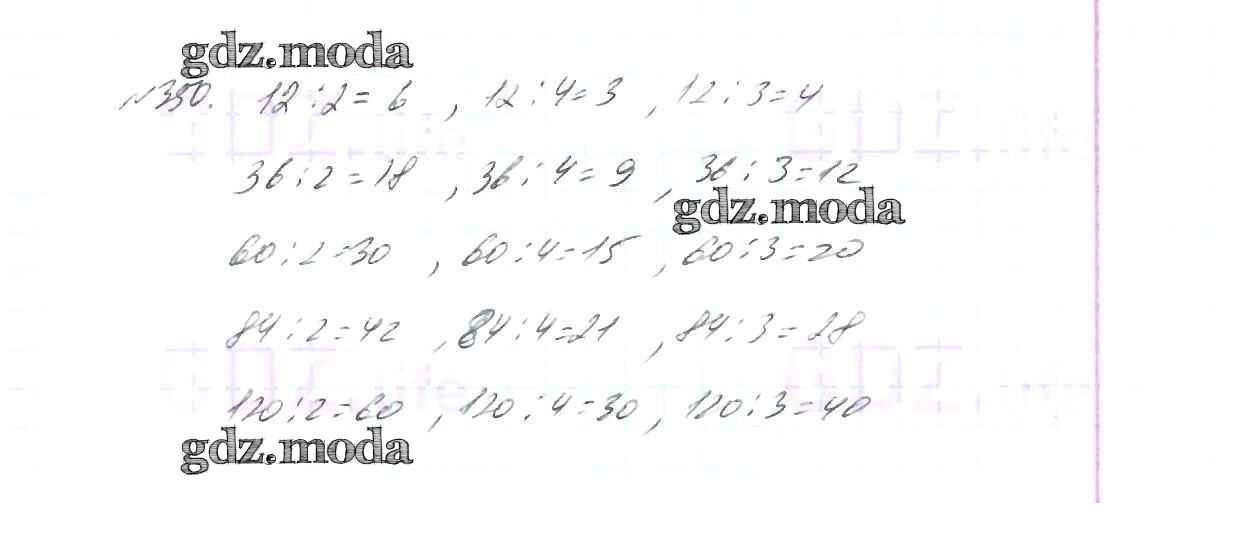 gdz.moda
№350. 12:2=6, 12:4=3, 12:3=4
36:2=18, 36:4=9, 36:3=12
gdz.moda
60:2=30, 60:4=15, 60:3=20
84:2=42, 84:4=21, 84:3=28
120:2=60, 120:4=30, 120:3=40
gdz.moda